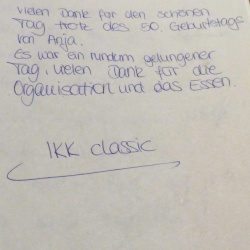 Vielen Dank für den schönen
Tag trotz des 50. Geburtstags
von Anja.
Es war ein rundum gelungener
Tag, vielen Dank für die
Organisation und das Essen.
IKK classic